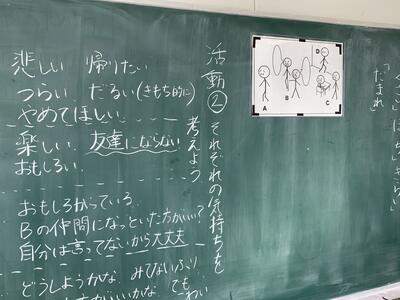 くさい ばち やらい
「だまれ」
D
B
A
C
活動② それぞれの気持ちを
考えよう
悲しい 帰りたい
つらい だるい(きもち的に)
やめてほしい
楽しい 友達にならない
おもしろい
おもしろがっている
Bの仲間になっといた方がいい?
自分は言ってないから大丈夫
どうしようかな みてないふり